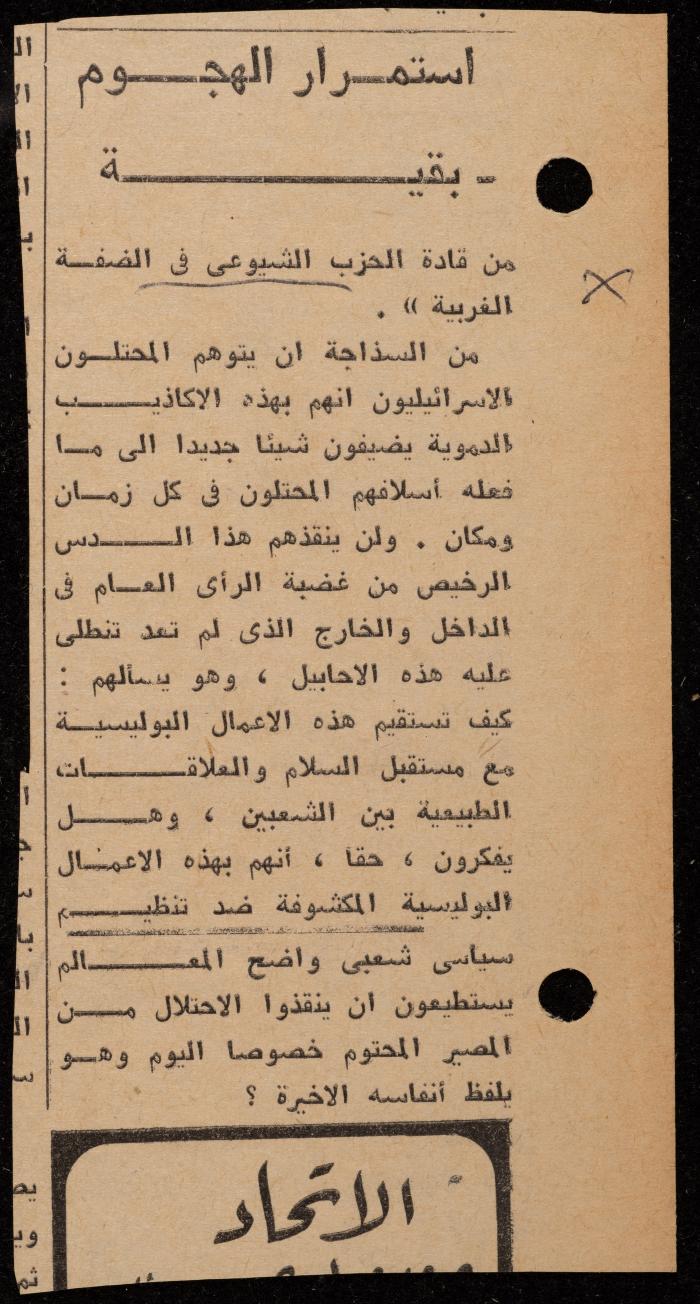 استمرار الهجوم
- بقية
من قادة الحزب الشيوعى فى الضفة
الغربية » .
من السذاجة ان يتوهم المحتلون
الاسرائيليون انهم بهذه الاكاذيب
الدموية يضيفون شيئا جديدا الى ما
فعله أسلافهم المحتلون فى كل زمان
ومكان . ولن ينقذهم هذا الدس
الرخيص من غضبة الرأى العام فى
الداخل والخارج الذى لم تعد تنطلى
عليه هذه الاحابيل ، وهو يسألهم :
كيف تستقيم هذه الاعمال البوليسية
مع مستقبل السلام والعلاقات
الطبيعية بين الشعبين ، وهل
يفكرون ، حقا ، أنهم بهذه الاعمال
البوليسية المكشوفة ضد تنظيم
سياسى شعبى واضح المعالم
يستطيعون ان ينقذوا الاحتلال من
المصير المحتوم خصوصا اليوم وهو
يلفظ أنفاسه الاخيرة ؟
الاتحاد